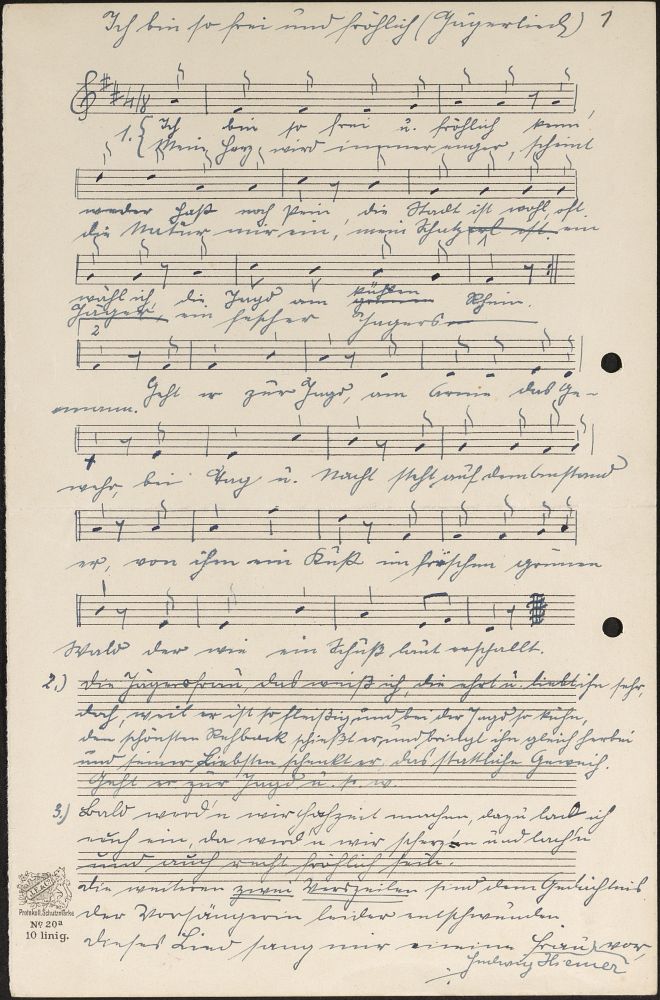 Ich bin so frei und fröhlich (Jägerlied) 1
4/8
1. { Ich bin so frei u. fröhlich kenn
Mein Herz wird immer enger, scheint
weder Haß noch Pein, die Stadt ist wohl oft
die Natur mir ein, mein Schatzerl ist ein
1
wähl ich, die Jagd am kühlen Rhein.
Jäger, ein fescher Jagers-
2
Geht er zur Jagd, am Arme das Ge-
mann.
wehr, bei Tag u. Nacht steht auf dem Anstand
er, von ihm ein Kuß im frischen grünen
Wald der wie ein Schuß laut erschallt.
2.) Die Jägersfrau, das weiß ich, die ehrt u. liebt ihn sehr,
doch, weil er ist so fleißig und bei der Jagd so kühn,
den schönsten Rehbock schießt er, und bringt ihn gleich herbei
und seiner Liebsten schenkt er, das stattliche Geweih.
Geht er zur Jagd u. s. w.
3.) Bald werd'n wir Hochzeit machen, dazu lad ich
euch ein, da werd'n wir scherzen und lach'n
und auch recht fröhlich sein.
Die weiteren zwei Verszeilen sind dem Gedächtnis
der Vorsängerin leider entschwunden
Dieses Lied sang mir eine Frau vor,
Hiemer
Protokoll. Schutzmarke
No 20a
10 linig.